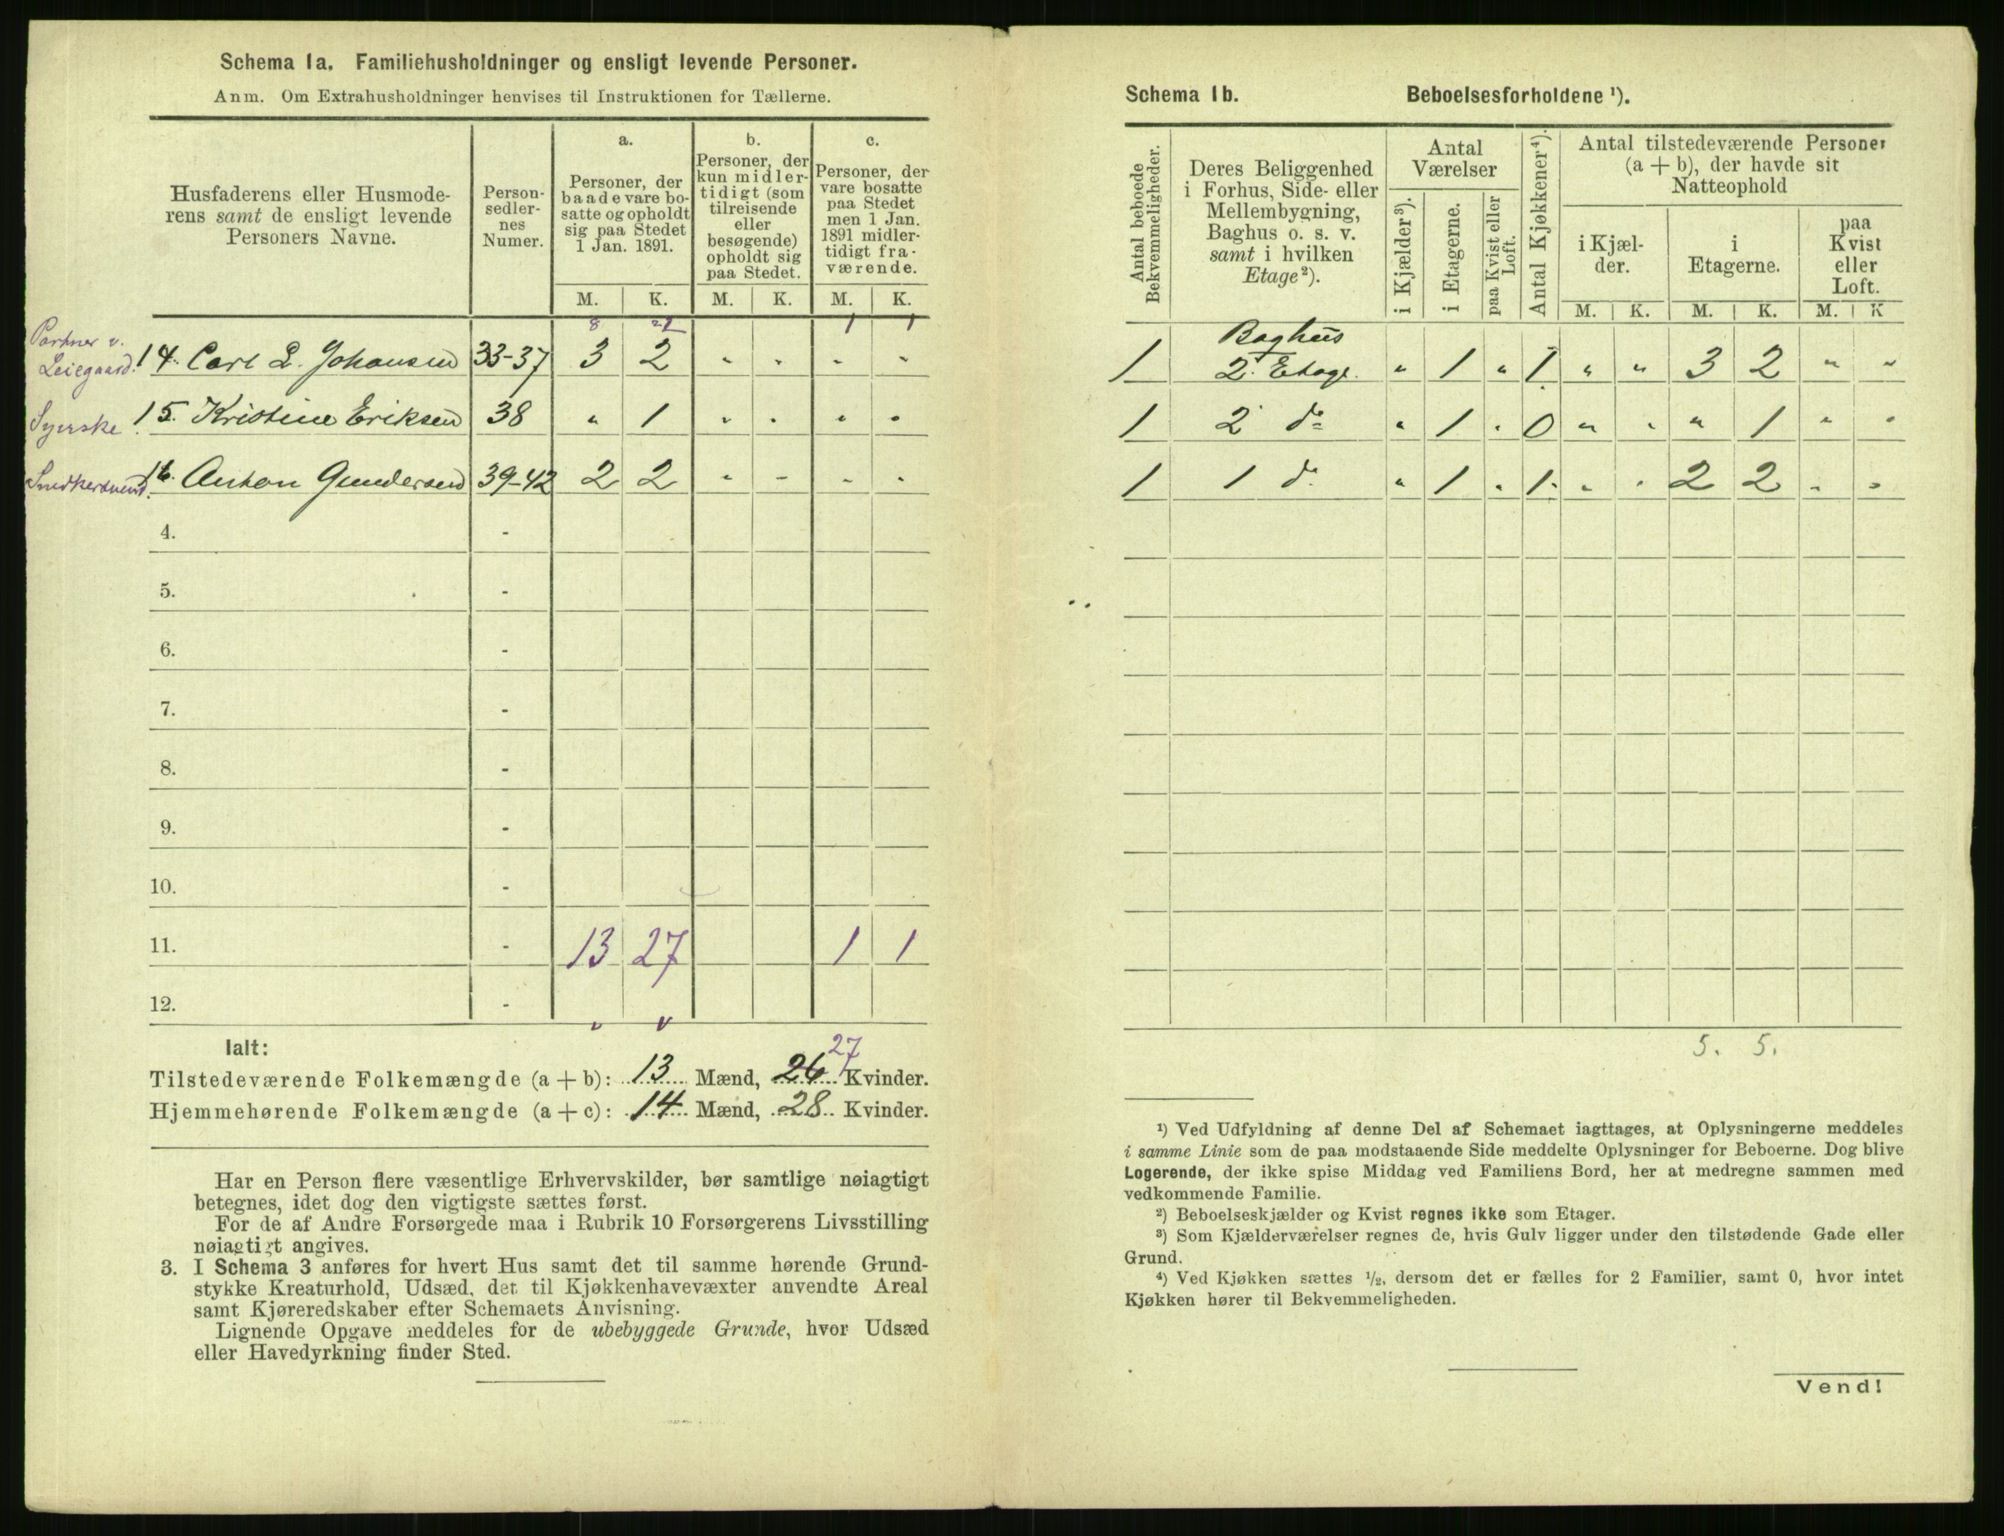 Schema 1a. Familiehusholdninger og ensligt levende Personer.
Anm. Om Extrahusholdninger henvises til Instruktionen for Tællerne.
Husfaderens eller Husmode-
rens samt de ensligt levende
Personers Navne.
Person-
sedler-
nes
Numer.
a.
Personer, der
baade vare bo-
satte og opholdt
sig paa Stedet
1 Jan. 1891.
b.
Personer, der
kun midler-
tidigt (som
tilreisende
eller
besøgende)
opholdt sig
paa Stedet.
c.
Personer, der
vare bosatte
paa Stedet
men 1 Jan.
1891 midler-
tidigt fra-
værende.
M. K. M. K. M. K.
8 22 1 1
Portner v.
Leiegaard. 14. Carl L. Johansen 33-37 3 2 " " " "
Syerske. 15. Kristine Eriksen 38 " 1 " " " "
Snedkersvend. 16. Anton Gundersen 39-42 2 2 " " " "
4. -
5. -
6. -
7. -
8. -
9. -
10. -
11. - 13 27 1 1
12. -
Ialt:
27
Tilstedeværende Folkemængde (a + b): 13 Mænd, 26 Kvinder.
Hjemmehørende Folkemængde (a + c): 14 Mænd, 28 Kvinder.
Har en Person flere væsentlige Erhvervskilder, bør samtlige nøiagtigt
betegnes, idet dog den vigtigste sættes først.
For de af Andre Forsørgede maa i Rubrik 10 Forsørgerens Livsstilling
nøiagtigt angives.
3. I Schema 3 anføres for hvert Hus samt det til samme hørende Grund-
stykke Kreaturhold, Udsæd, det til Kjøkkenhavevæxter anvendte Areal
samt Kjøreredskaber efter Schemaets Anvisning.
Lignende Opgave meddeles for de ubebyggede Grunde, hvor Udsæd
eller Havedyrkning finder Sted.
Schema 1b. Beboelsesforholdene ¹).
Antal beboede
Bekvemmeligheder.
Deres Beliggenhed
i Forhus, Side- eller
Mellembygning,
Baghus o. s. v.
samt i hvilken
Etage²).
Antal
Værelser
i Kjælder³).
i Etagerne.
paa Kvist eller
Loft.
Antal Kjøkkener⁴).
Antal tilstedeværende Personer
(a + b), der havde sit
Natteophold
i Kjæl-
der.
i
Etagerne.
paa
Kvist
eller
Loft.
M. K. M. K. M. K
Baghus
1 2. Etage. " 1 " 1 " " 3 2 " "
1 2 do " 1 " 0 " " " 1 " "
1 1 do " 1 " 1 " " 2 2 " "
5. 5.
¹) Ved Udfyldning af denne Del af Schemaet iagttages, at Oplysningerne meddeles
i samme Linie som de paa modstaaende Side meddelte Oplysninger for Beboerne. Dog blive
Logerende, der ikke spise Middag ved Familiens Bord, her at medregne sammen med
vedkommende Familie.
²) Beboelseskjælder og Kvist regnes ikke som Etager.
³) Som Kjælderværelser regnes de, hvis Gulv ligger under den tilstødende Gade eller
Grund.
⁴) Ved Kjøkken sættes ½, dersom det er fælles for 2 Familier, samt 0, hvor intet
Kjøkken hører til Bekvemmeligheden.
Vend!